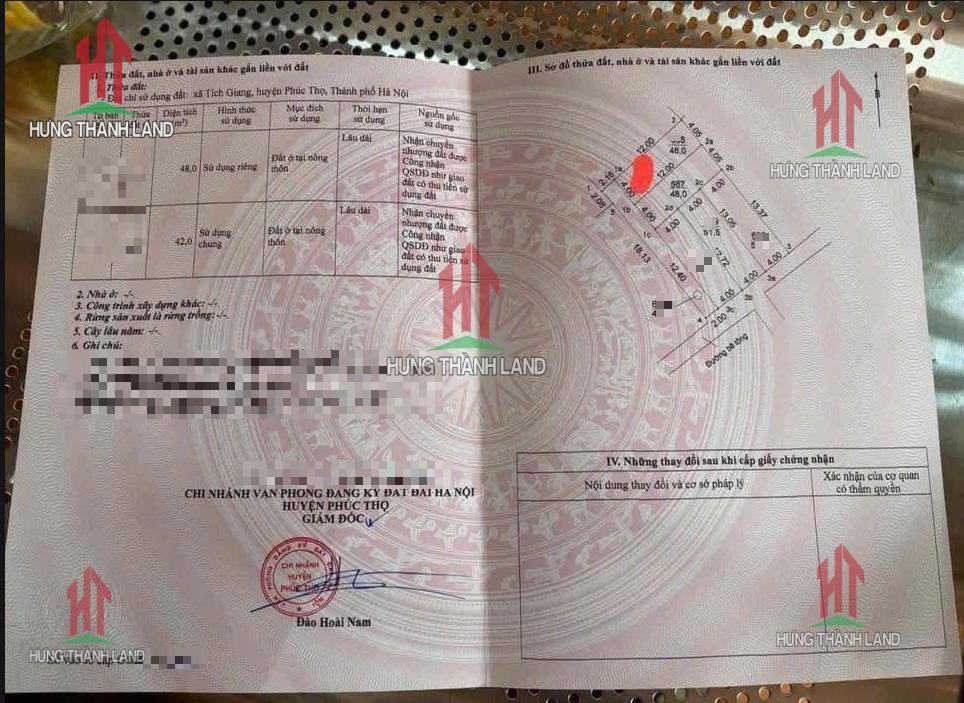 II. Thửa đất, nhà ở và tài sản khác gắn liền với đất
1. Thửa đất:
Địa chỉ sử dụng đất: xã Tích Giang, huyện Phúc Thọ, Thành phố Hà Nội
Tờ bản Thửa Diện tích (m²) Hình thức sử dụng Mục đích sử dụng Thời hạn sử dụng Nguồn gốc sử dụng
48,0 Sử dụng riêng Đất ở tại nông thôn Lâu dài Nhận chuyển nhượng đất được Công nhận QSDĐ như giao đất có thu tiền sử dụng đất
42,0 Sử dụng chung Đất ở tại nông thôn Lâu dài Nhận chuyển nhượng đất được Công nhận QSDĐ như giao đất có thu tiền sử dụng đất
2. Nhà ở: -/-.
3. Công trình xây dựng khác: -/-.
4. Rừng sản xuất là rừng trồng: -/-.
5. Cây lâu năm: -/-.
6. Ghi chú:
CHI NHÁNH VĂN PHÒNG ĐĂNG KÝ ĐẤT ĐAI HÀ NỘI
HUYỆN PHÚC THỌ
GIÁM ĐỐC
CHI NHÁNH
HUYỆN
PHÚC THỌ
Đào Hoài Nam
III. Sơ đồ thửa đất, nhà ở và tài sản khác gắn liền với đất
B
2
4.05
12.00
48.0
2a
4.05
2b
1a
2.16
1
4.00
12.00
667
48.0
2c
4.00
2.08
5
1b
4.00
2d
4.00
1c
4.00
13.05
13.37
91,5
18.13
12.40
3
4.00
3a
4.00
3b
4.00
3c
4
2.00
Đường bê tông
IV. Những thay đổi sau khi cấp giấy chứng nhận
Nội dung thay đổi và cơ sở pháp lý
Xác nhận của cơ quan
có thẩm quyền
HT
HƯNG THÀNH LAND
HT
HƯNG THÀNH LAND
HT
HƯNG THÀNH LAND
HT
HƯNG THÀNH LAND
HT
HƯNG THÀNH LAND